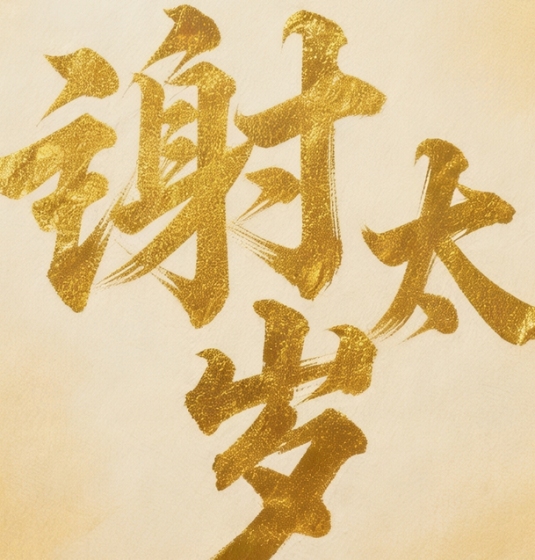 谢太
岁